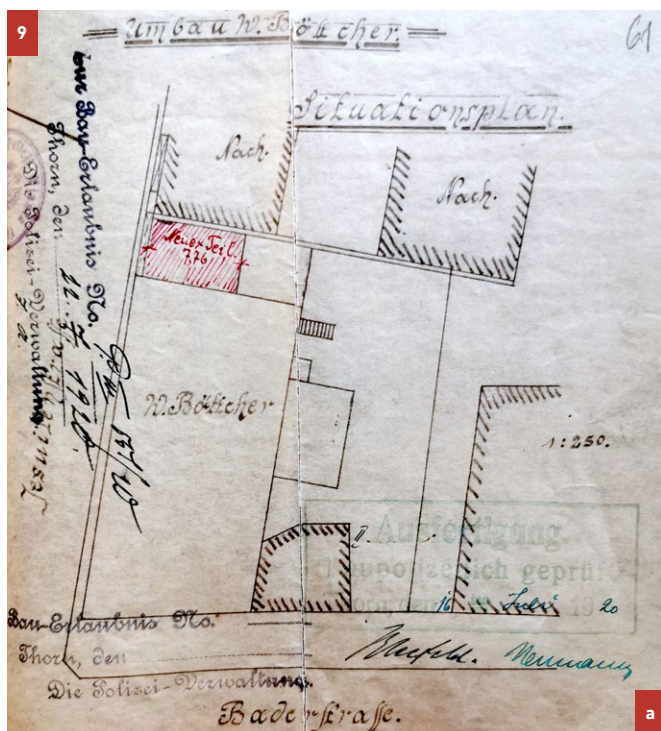 9
Umbau W. Böttcher.
61
Situationsplan.
Nach.
Nach.
Neuer Teil.
7,76
W. Böttcher
1:250.
II.
zur Bau-Erlaubnis No.
Thorn, den
1920
Die Polizei-Verwaltung
Ausfertigung.
baupolizeilich geprüft
16 Juli 19 20
Bau-Erlaubnis No.
Thorn, den
Die Polizei-Verwaltung.
Neumann
Baderstraße.
a